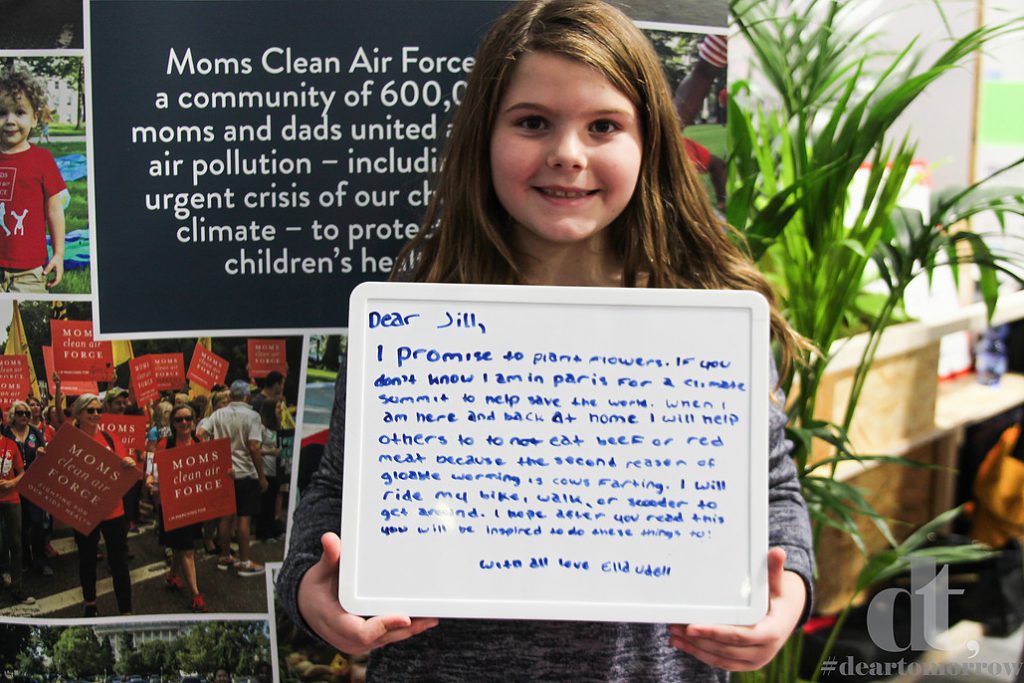 Moms Clean Air Force
a community of 600,0
moms and dads united a
air pollution – includi
urgent crisis of our ch
climate – to prote
children's heal
MOMS
clean air
FORCE
MOMS
clean air
FORCE
MOMS
clean air
FORCE
FIGHTING FOR
OUR KIDS HEALTH
MOMS
clean air
FORCE
Dear Jill,
I promise to plant flowers. If you
don't know I am in paris for a climate
summit to help save the world. When I
am here and back at home I will help
others to to not eat beef or red
meat because the second reason of
gloable worming is cows farting. I will
ride my bike, walk, or scooder to
get around. I hope after you read this
you will be inspired to do these things to!
with all love Ella udell
dt,
#deartomorrow